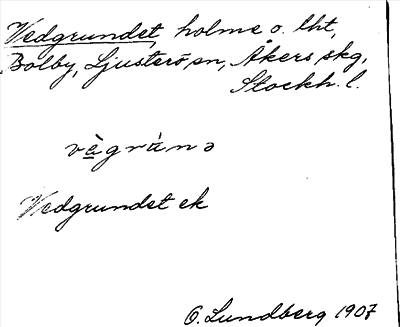 Vedgrundet, holme o. lht,
Bolby, Ljusterö sn, Åkers skg,
Stockh. l.
vàgránə
Vedgrundet ek
O. Lundberg 1907